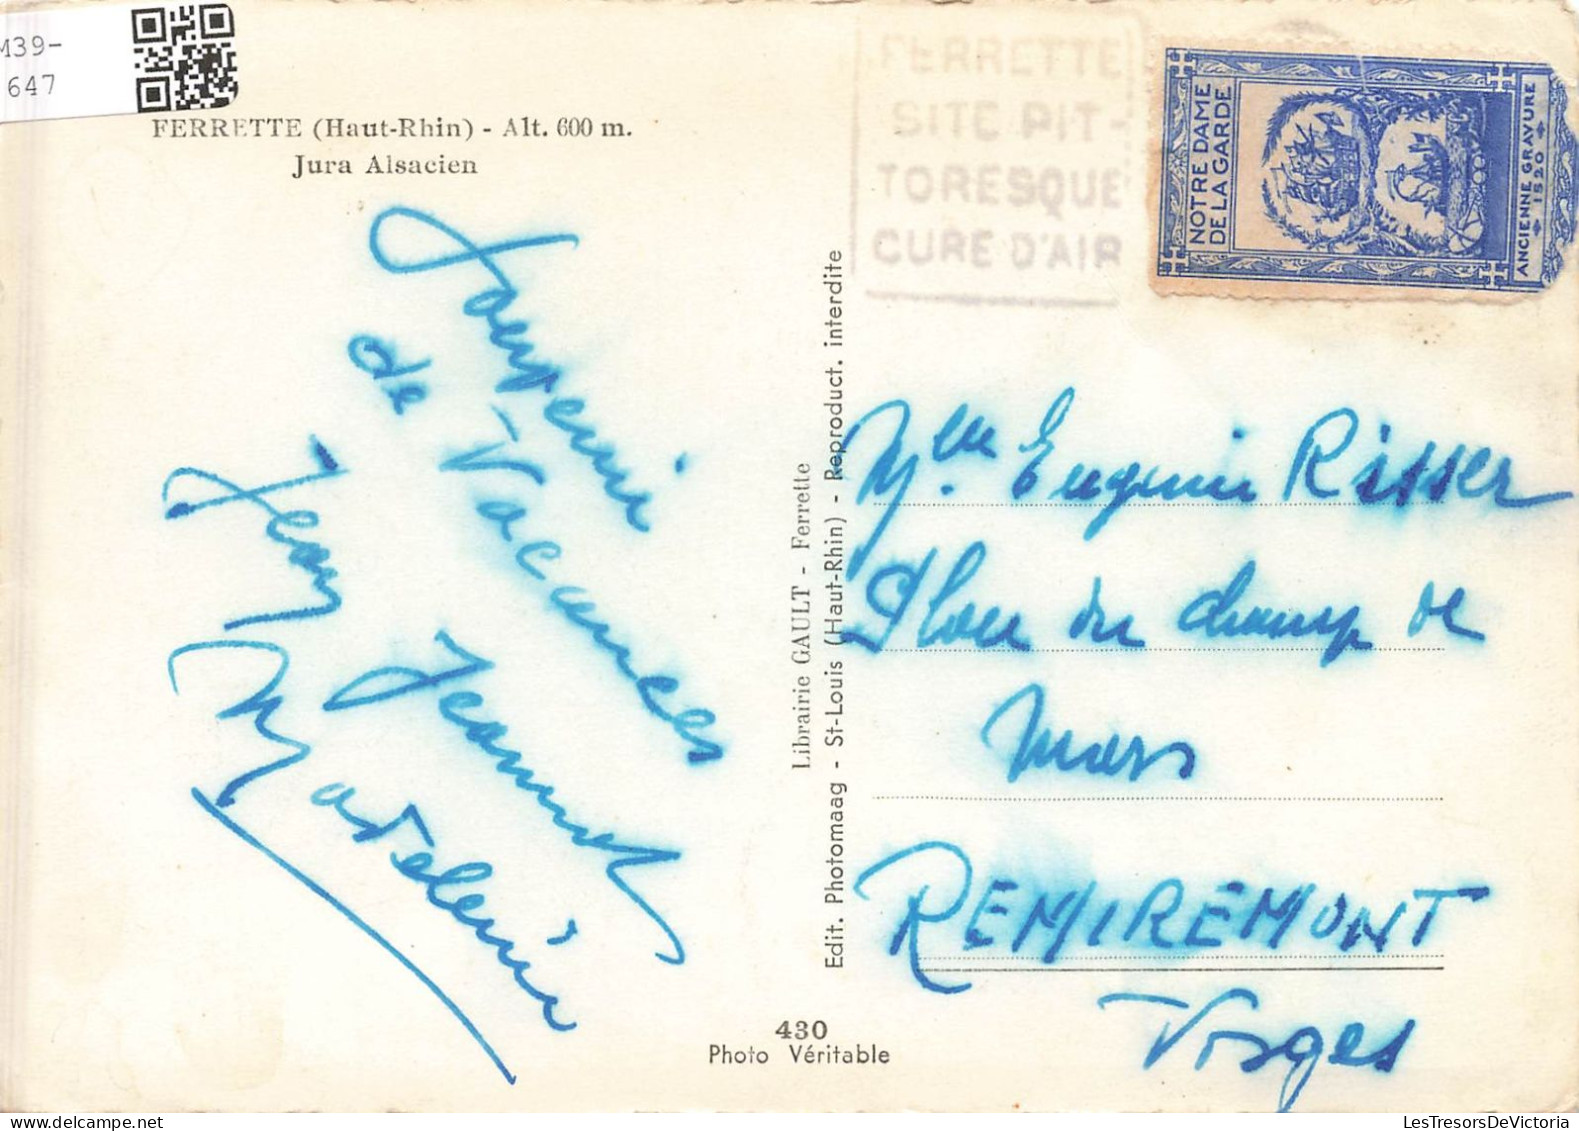 M39-
647
FERRETTE (Haut-Rhin) - Alt. 600 m.
Jura Alsacien
Souvenir
de Vacances
Jean Jeannot
Madeleine
Librairie GAULT - Ferrette
Edit. Photomaag - St-Louis (Haut-Rhin) - Reproduct. interdite
430
Photo Véritable
FERRETTE
SITE PIT-
TORESQUE
CURE D'AIR
NOTRE DAME
DE LA GARDE
ANCIENNE GRAVURE
1520
Mlle Eugenie Risser
Place du champ de
Mars
REMIREMONT
Vosges
LesTresorsDeVictoria